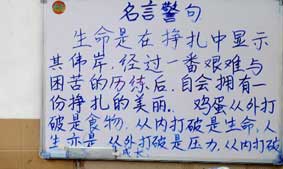 名言警句
生命是在挣扎中显示
其伟岸,经过一番艰难与
困苦的历练后,自会拥有一
份挣扎的美丽. 鸡蛋从外打
破是食物,从内打破是生命,人
生亦是,从外打破是压力,从内打破
成长